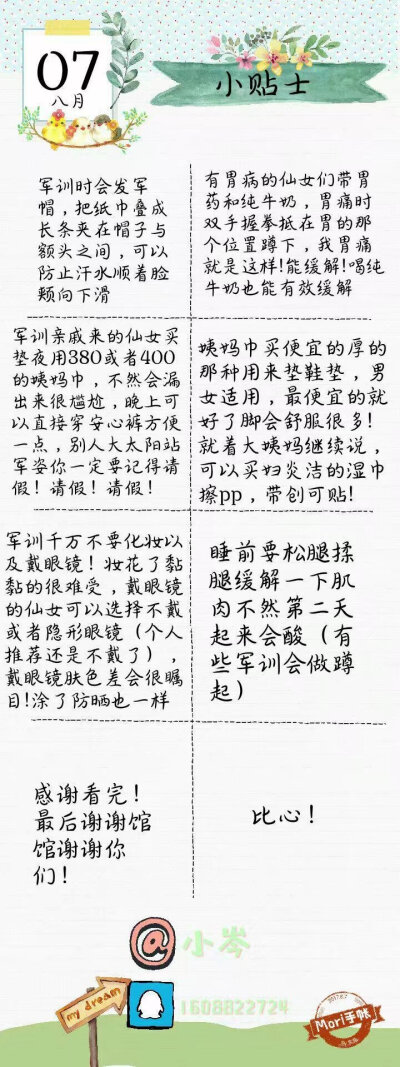 07
八月
小贴士
军训时会发军
帽，把纸巾叠成
长条夹在帽子与
额头之间，可以
防止汗水顺着脸
颊向下滑
有胃病的仙女们带胃
药和纯牛奶，胃痛时
双手握拳抵在胃的那
个位置蹲下，我胃痛
就是这样!能缓解!喝纯
牛奶也能有效缓解
军训亲戚来的仙女买
垫夜用380或者400
的姨妈巾，不然会漏
出来很尴尬，晚上可
以直接穿安心裤方便
一点，别人大太阳站
军姿你一定要记得请
假！请假！请假！
姨妈巾买便宜的厚的
那种用来垫鞋垫，男
女适用，最便宜的就
好了脚会舒服很多！
就着大姨妈继续说，
可以买妇炎洁的湿巾
擦pp，带创可贴!
军训千万不要化妆以
及戴眼镜！妆花了黏
黏的很难受，戴眼镜
的仙女可以选择不戴
或者隐形眼镜（个人
推荐还是不戴了），
戴眼镜肤色差会很瞩
目!涂了防晒也一样
睡前要松腿揉
腿缓解一下肌
肉不然第二天
起来会酸（有
些军训会做蹲
起）
感谢看完！
最后谢谢馆
馆谢谢你
们！
比心！
@小岑
1608822724
my dream
Mori手帐